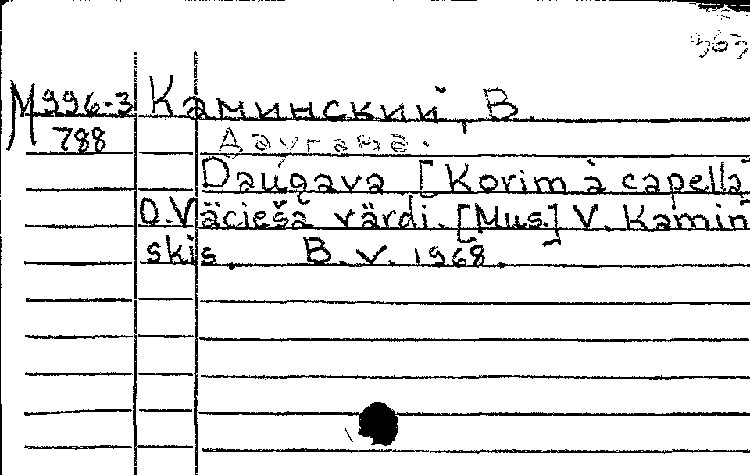 363
М 996-3 Каминский, В.
788 Даугава.
Daugava [Korim à capella]
O. Vācieša vārdi. [Mus.] V. Kamin
skis. B. v. 1968.